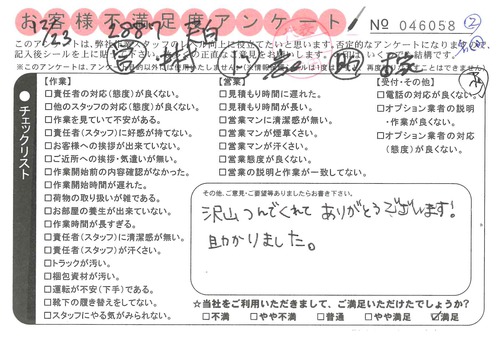 お客様不満足度アンケート
No 046058 ②
12/23
このアンケートは、弊社
【作業】
□責任者の対応(態度)が良くない。
□他のスタッフの対応(態度)が良くない。
□作業を見ていて不安がある。
□責任者(スタッフ)に好感が持てない。
□お客様への挨拶が出来ていない。
□ご近所への挨拶・気遣いが無い。
□作業開始前の内容確認がなかった。
□作業開始時間が遅れた。
□荷物の取り扱いが雑である。
□お部屋の養生が出来ていない。
□作業時間が長すぎる。
□責任者(スタッフ)に清潔感が無い。
□責任者(スタッフ)が汗くさい。
□トラックが汚い。
□梱包資材が汚い。
□運転が不安(下手)である。
□靴下の履き替えをしてない。
□スタッフにやる気がみられない。
【営業】
□見積もり時間に遅れた。
□見積もり時間が長い。
□営業マンに清潔感が無い。
□営業マンが煙草くさい。
□営業マンが汗くさい。
□営業態度が良くない。
□営業の説明と作業が一致してない。
【受付・その他】
□電話の対応が良くない。
□オプション業者の説明・作業が良くない。
□オプション業者の対応(態度)が良くない。
チェックリスト
その他、ご意見・ご要望等ありましたらお書き下さい。
沢山つんでくれて ありがとうございます!
助かりました。
☆当社をご利用いただきまして、ご満足いただけたでしょうか?
□不満 □やや不満 □普通 □やや満足 ☑満足